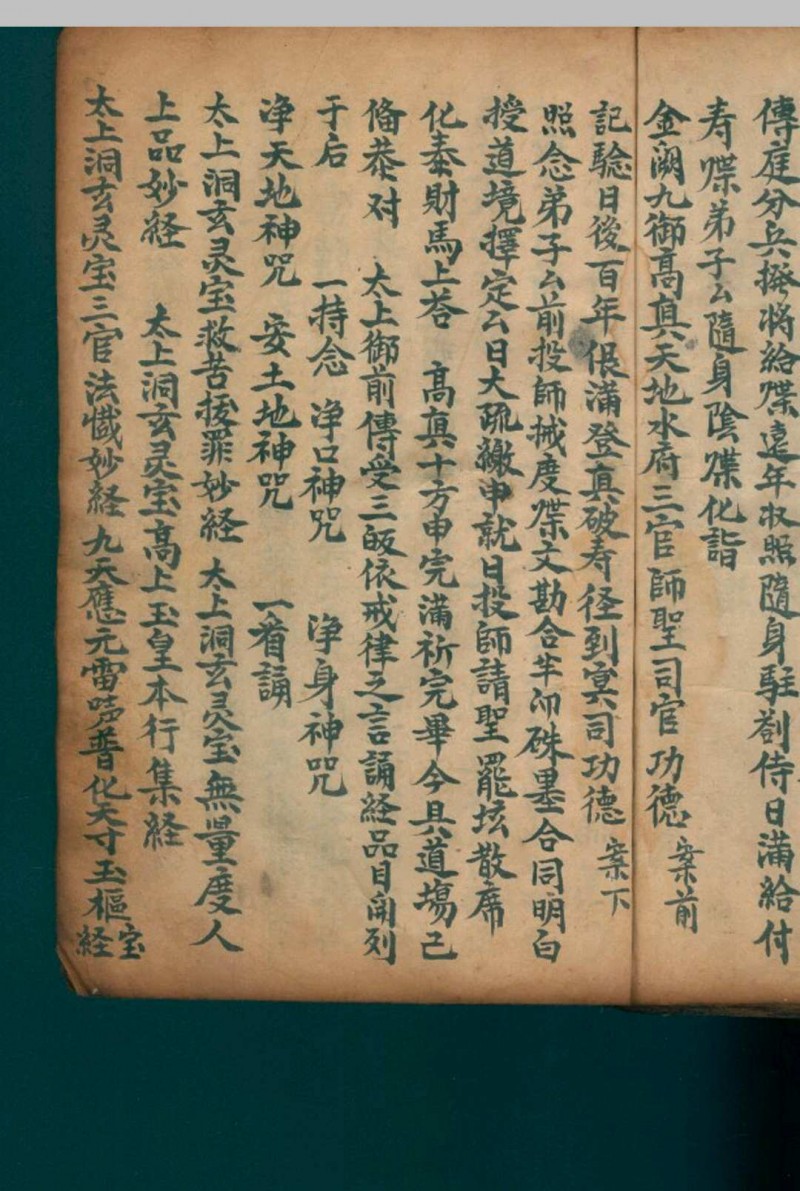 傳庭分兵撥將給牒遠年收照隨身駐劄侍日滿給付
寿牒弟子厶隨身陰牒化詣
金闕九御高真天地水府三官師聖司官功德 案前
記驗日後百年限滿登真破寿径到冥司功德 案下
照念弟子厶前投師械度牒文勘合半印硃墨合同明白
授道境擇定厶日大疏繳申就日投師請聖罷坛散席
化奉財馬上荅 高真十方申完滿祈完畢今具道場已
俻恭对 太上御前傳受三皈依戒律之言誦経品目開列
于后 一持念 净口神咒 净身神咒
净天地神咒 安土地神咒 一看誦
太上洞玄灵宝救苦拔罪妙経 太上洞玄灵宝無量度人
上品妙経 太上洞玄灵宝高上玉皇本行集経
太上洞玄灵宝三官法懴妙経 九天應元雷声普化天寸玉樞宝経